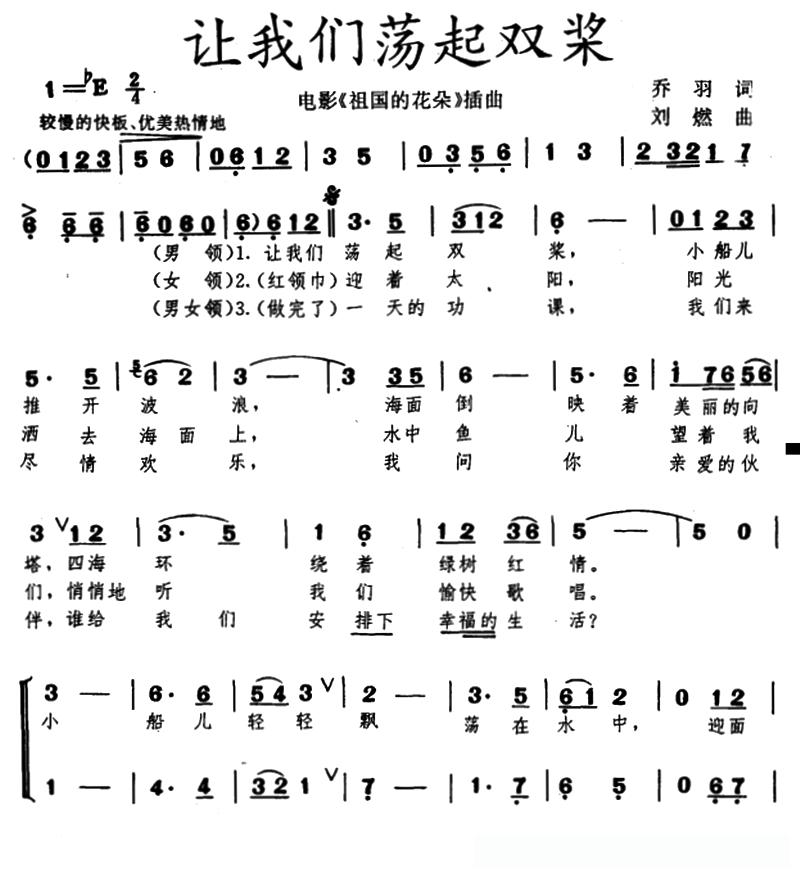 让我们荡起双桨
1=♭E 2/4
电影《祖国的花朵》插曲
乔羽 词
刘燃 曲
较慢的快板、优美热情地
(0123 | 56 | 0612 | 3 5 | 0356 | 1 3 | 2321 7
6 | 6 6 | 6060 | 6)612 ‖ 3· 5 | 312 | 6 — | 0123 |
(男 领)1. 让我们 荡 起 双 桨, 小船儿
(女 领)2.(红领巾)迎 着 太 阳, 阳光
(男女领)3.(做完了)一 天的 功 课, 我们来
5· 5 | 5 6 2 | 3 — | 3 35 | 6 — | 5· 6 | 1 7656 |
推 开 波 浪, 海面 倒 映 着 美 丽的向
洒 去 海 面 上, 水中 鱼 儿 望 着 我
尽 情 欢 乐, 我 问 你 亲 爱的伙
3 ∨ 12 | 3· 5 | 1 6 | 12 36 | 5 — | 5 0 |
塔, 四海 环 绕着 绿树 红 情。
们, 悄悄地 听 我 们 愉快 歌 唱。
伴, 谁给 我 们 安 排下 幸福的 生 活?
3 — | 6· 6 | 54 3 ∨ | 2 — | 3· 5 | 612 | 0 12 |
小 船 儿 轻 轻 飘 荡 在 水 中, 迎面
1 — | 4· 4 | 321 ∨ | 7 — | 1· 7 | 6 5 | 0 67 |